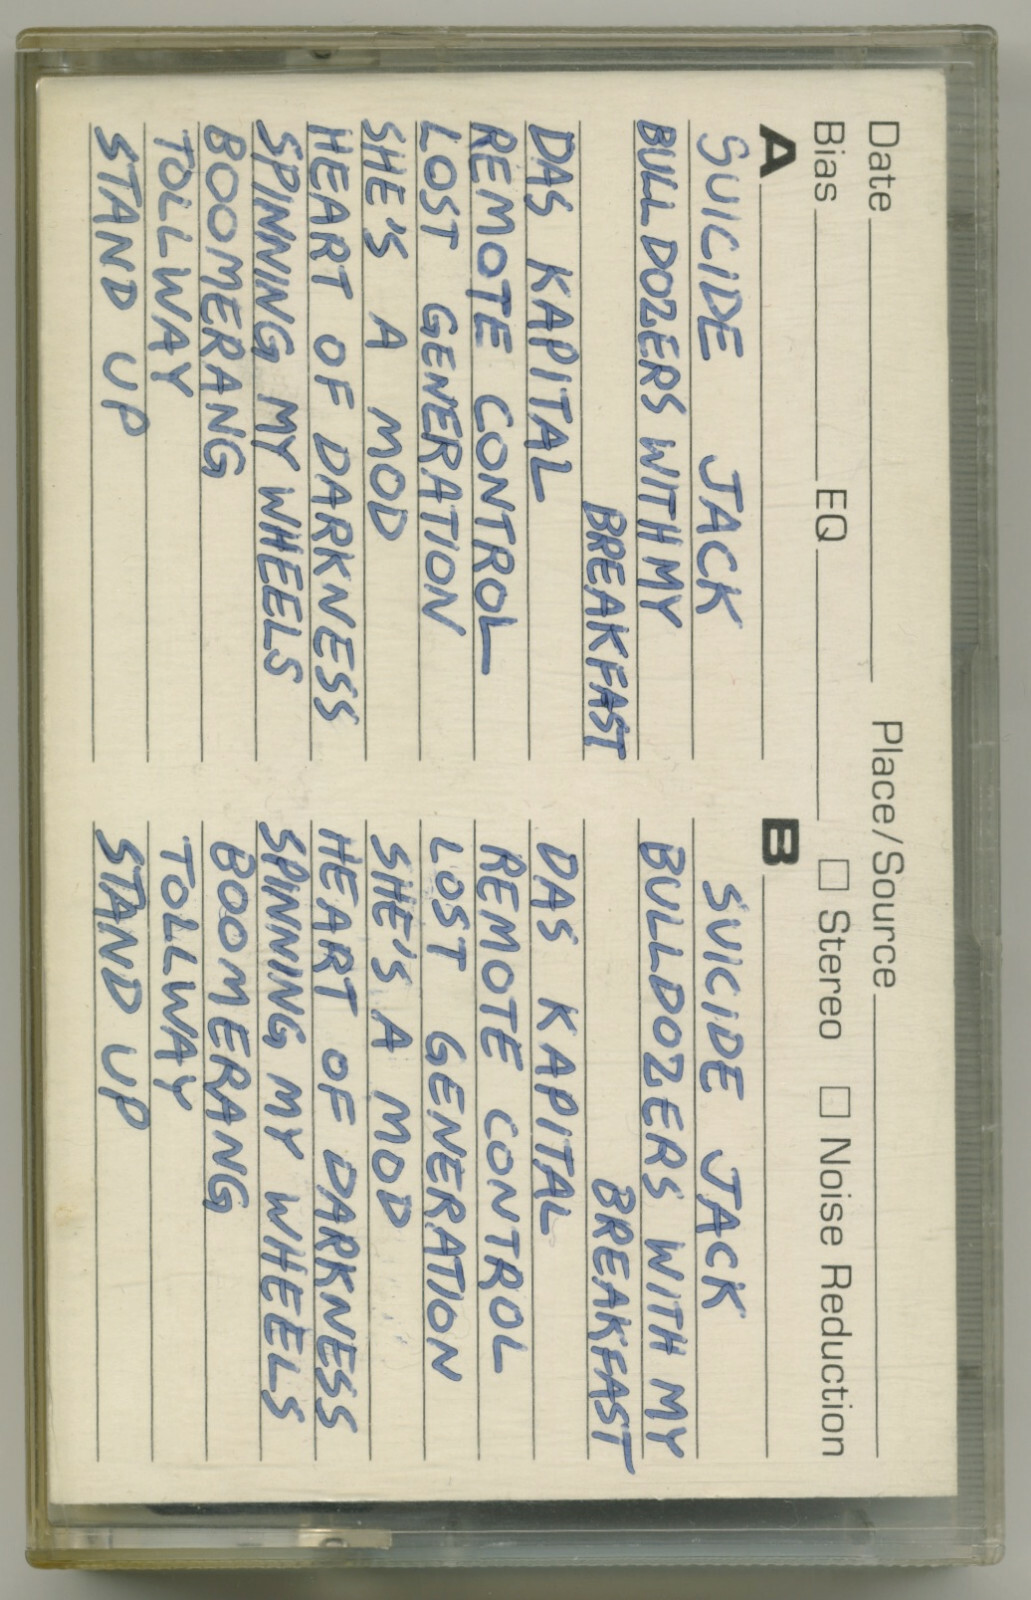 Date Place/Source
Bias EQ Stereo Noise Reduction
A
SUICIDE JACK
BULLDOZERS WITH MY
BREAKFAST
DAS KAPITAL
REMOTE CONTROL
LOST GENERATION
SHE'S A MOD
HEART OF DARKNESS
SPINNING MY WHEELS
BOOMERANG
TOLLWAY
STAND UP
B
SUICIDE JACK
BULLDOZERS WITH MY
BREAKFAST
DAS KAPITAL
REMOTE CONTROL
LOST GENERATION
SHE'S A MOD
HEART OF DARKNESS
SPINNING MY WHEELS
BOOMERANG
TOLLWAY
STAND UP